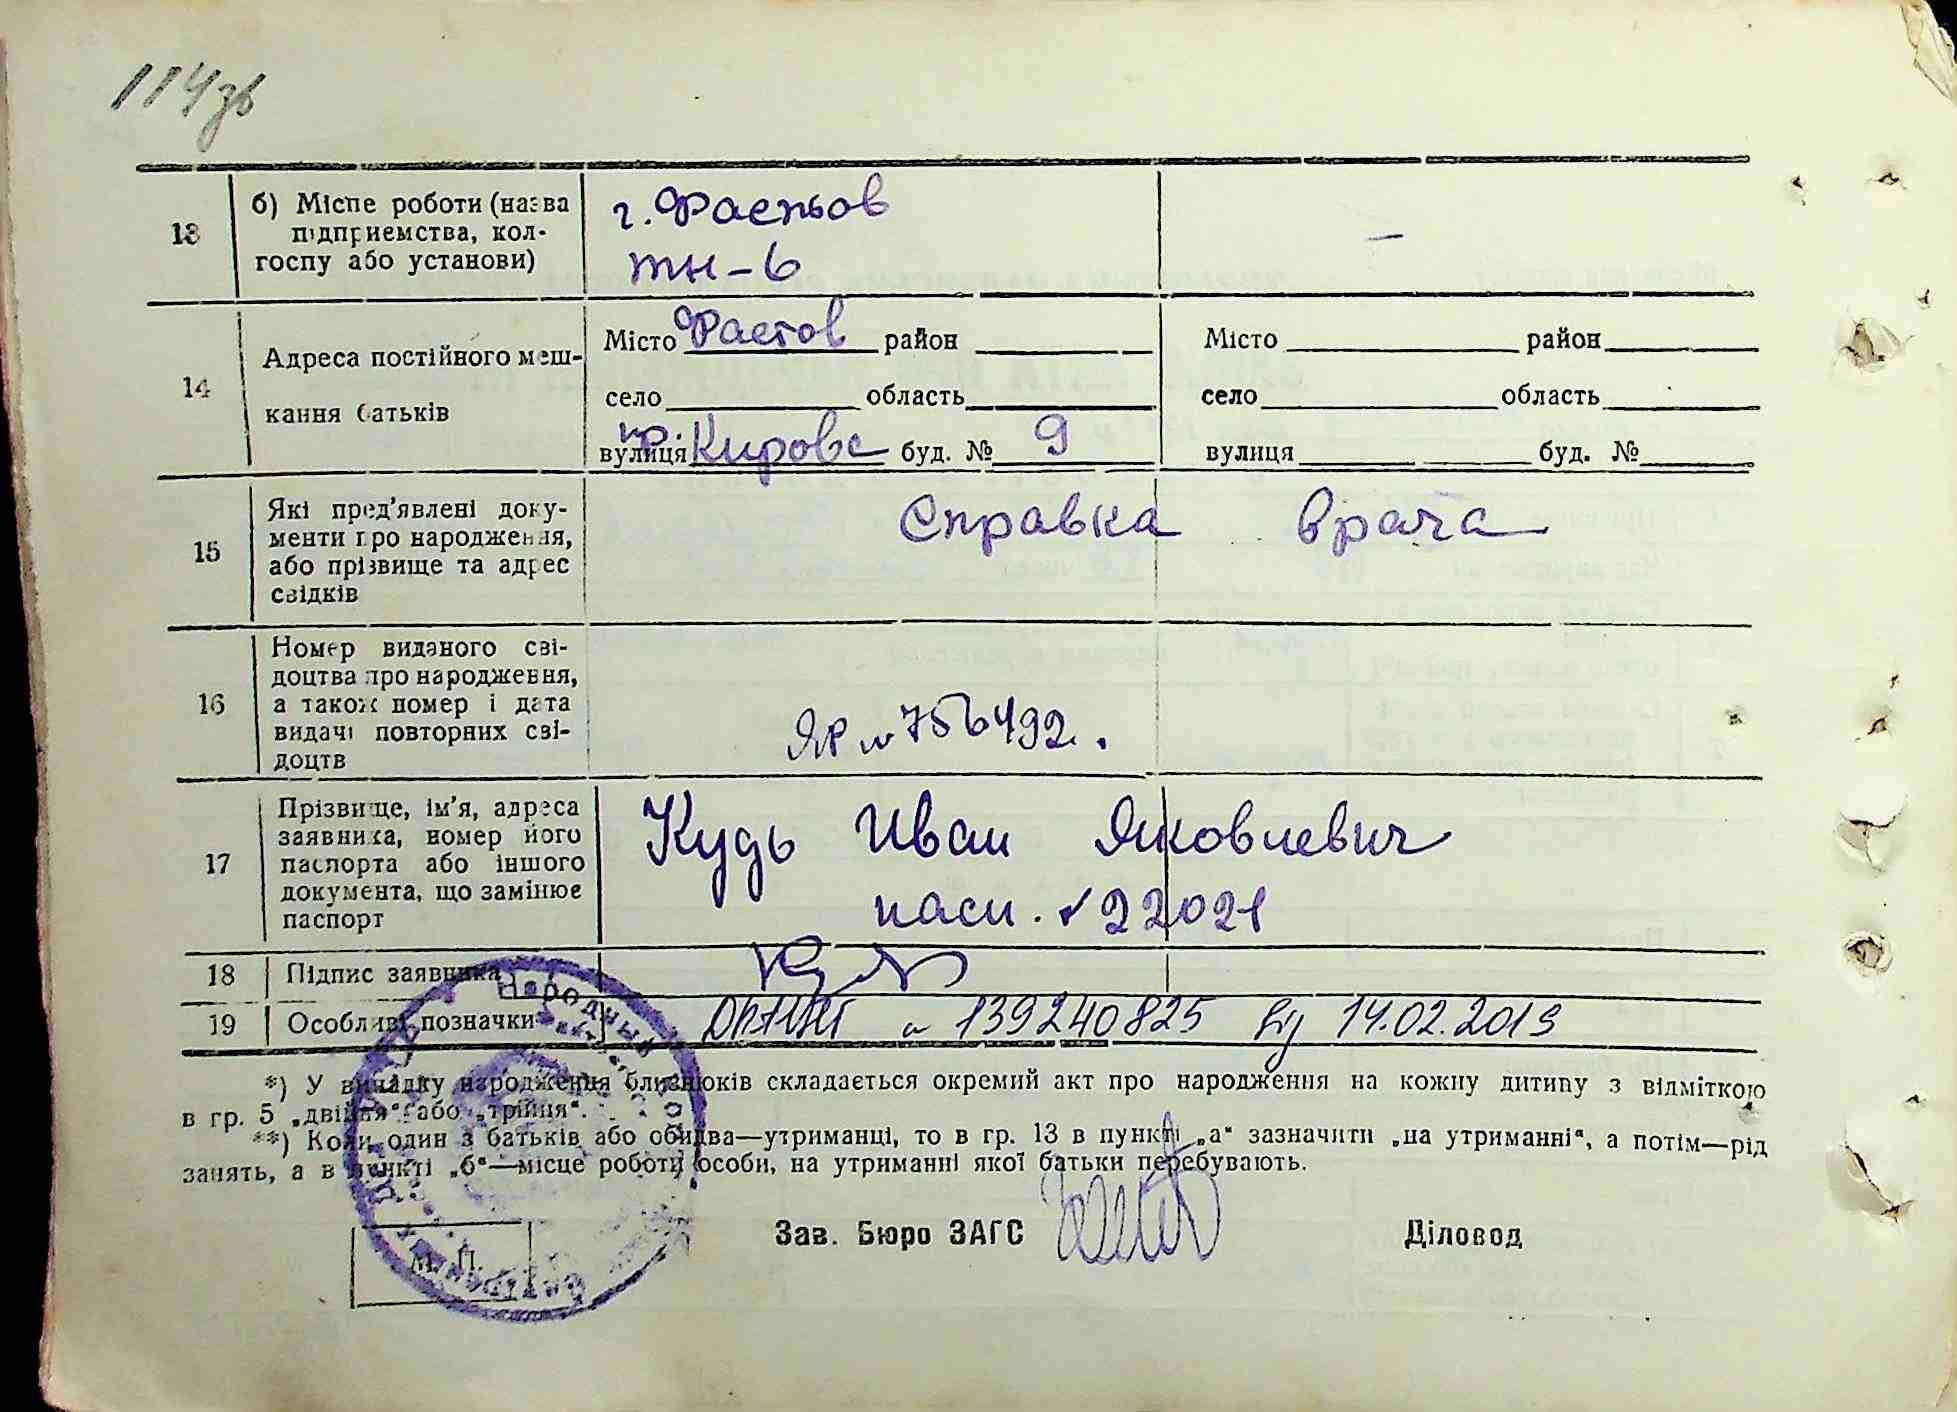 114зв
13
б) Місце роботи (назва
підприємства, кол-
госпу або установи)
г. Фастов
тч-6
—
14
Адреса постійного меш-
кання батьків
Місто Фастов район
село область
вулиця пр. Кирова буд. № 9
Місто район
село область
вулиця буд. №
15
Які пред'явлені доку-
менти про народження,
або прізвище та адрес
свідків
Справка врача
16
Номер виданого сві-
доцтва про народження,
а також номер і дата
видачі повторних сві-
доцтв
ЯР № 756492.
17
Прізвище, ім'я, адреса
заявника, номер його
паспорта або іншого
документа, що замінює
паспорт
Кудь Иван Яковлевич
пасп. № 22021
18
Підпис заявника
19
Особливі позначки
ДРАЦСГ № 139240825 від 14.02.2019
*) У випадку народження близнюків складається окремий акт про народження на кожну дитину з відміткою
в гр. 5 „двійня“ або „трійня“.
**) Коли один з батьків або обидва—утриманці, то в гр. 13 в пункті „а“ зазначити „на утриманні“, а потім—рід
занять, а в пункті „б“—місце роботи особи, на утриманні якої батьки перебувають.
Зав. Бюро ЗАГС
Діловод
М. П.
Народный